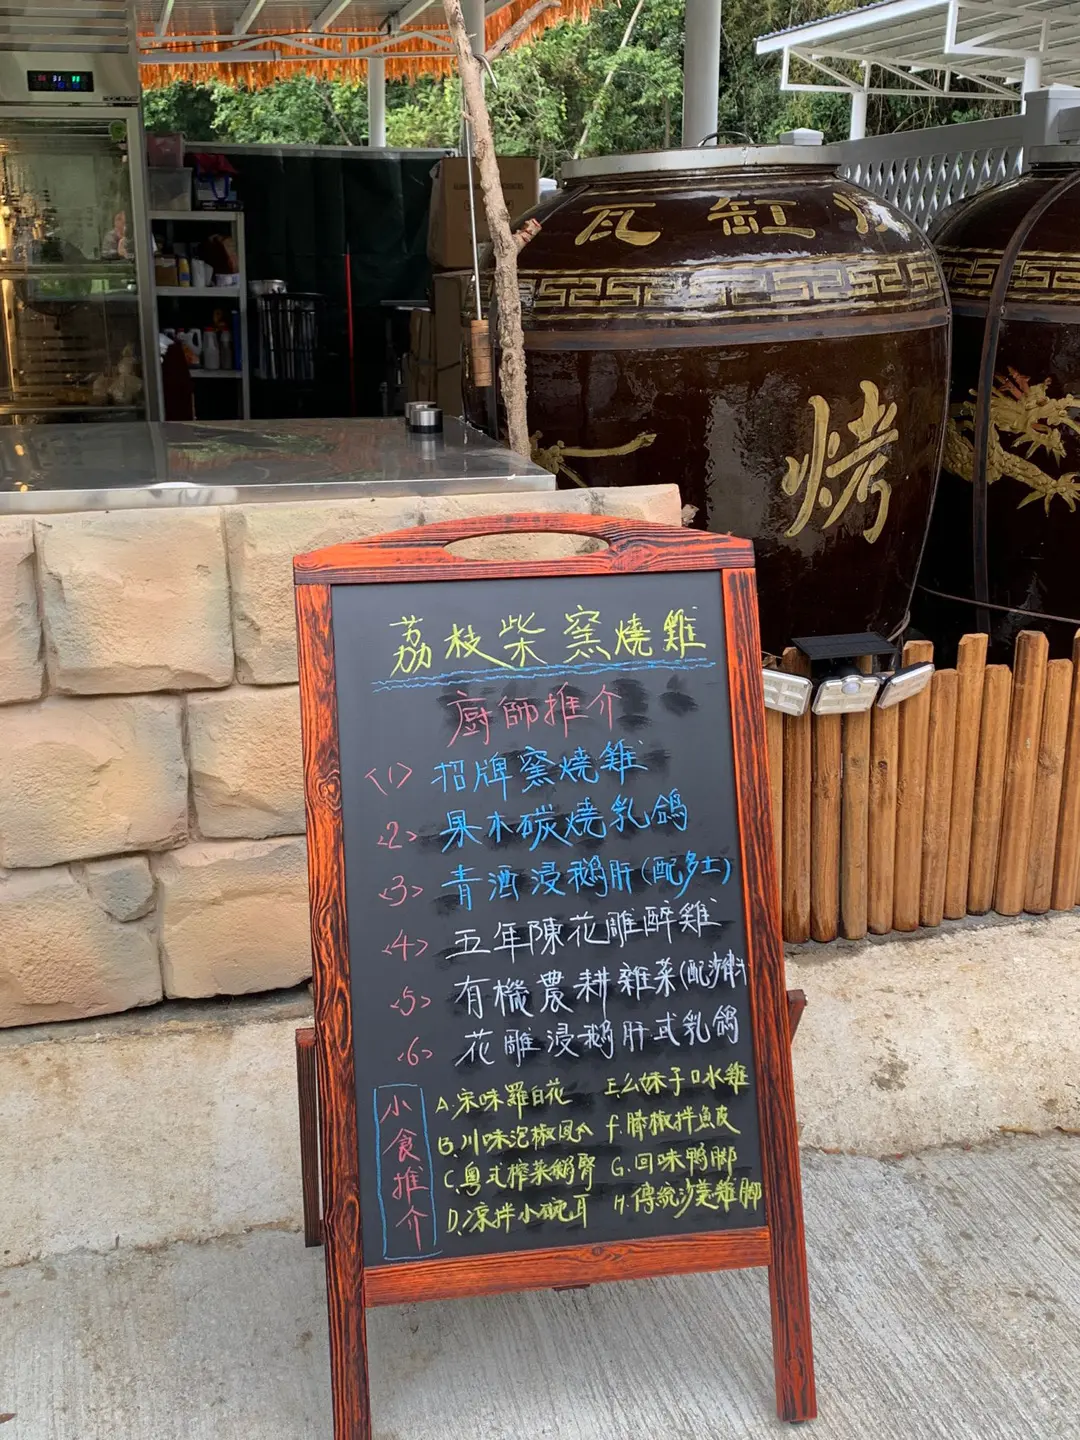 瓦缸
烤
荔枝柴窯燒雞
廚師推介
<1> 招牌窯燒雞
<2> 果木碳燒乳鴿
<3> 青酒浸鵝肝(配多士)
<4> 五年陳花雕醉雞
<5> 有機農耕雜菜(配沙律汁
<6> 花雕浸鵝肝式乳鴿
小食推介
A.宋味羅白花
B.川味泡椒鳳爪
C.粵式榨菜鵝腎
D.涼拌小碗耳
E.么妹子口水雞
F.勝椒拌魚皮
G.回味鴨腳
H.傳統沙姜雞腳